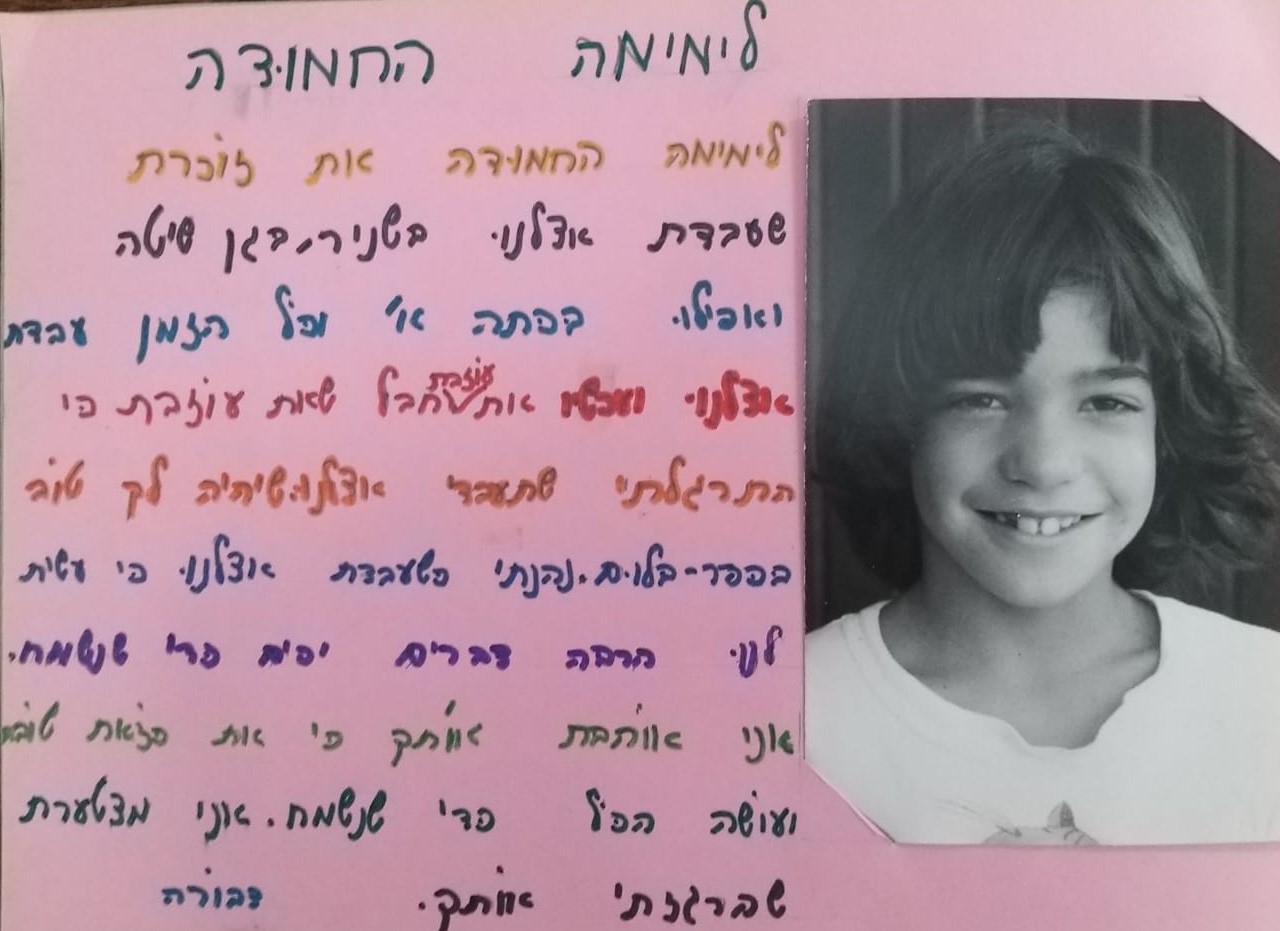 לימימה החמודה
לימימה החמודה את זוכרת
שעבדת אצלנו בשניר, בגן שיטה
ואפילו בכתה א' וכל הזמן עבדת
אצלנו ועכשיו את עוזבת חבל שאת עוזבת כי
התרגלתי שתעבדי אצלנו. שיהיה לך טוב
בכפר-בלום. נהנתי כשעבדת אצלנו כי עשית
לנו הרבה דברים יפים כדי שנשמח.
אני אוהבת אותך כי את כזאת טובה
ועושה הכל כדי שנשמח. אני מצטערת
שהרגזתי אותך. דבורה